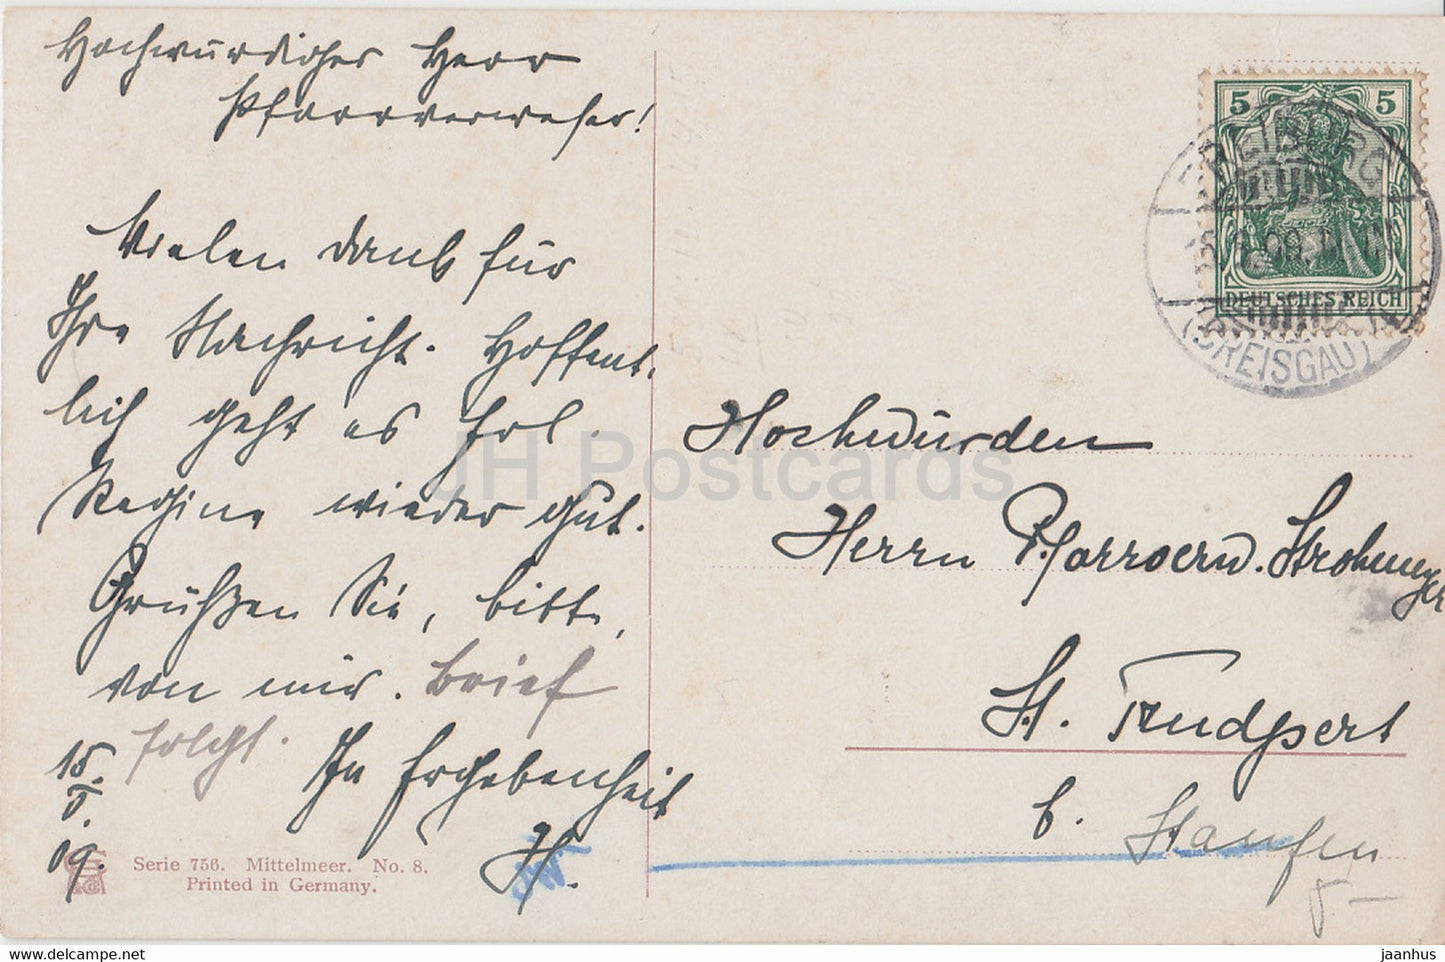 Hochwürdiger Herr
Pfarrverweser!
Vielen Dank für
Ihre Nachricht. Hoffent-
lich geht es Frl.
Regine wieder gut.
Grüßen Sie, bitte,
von mir. Brief
folgt. In Ergebenheit
15.
5.
09.
H.
Serie 756. Mittelmeer. No. 8.
Printed in Germany.
5 5
DEUTSCHES REICH
FREIBURG
(BREISGAU)
Hochwürden
Herrn Pfarrverw. Strohmeyer
St. Trudpert
b. Staufen
JH Postcards
jaanhus